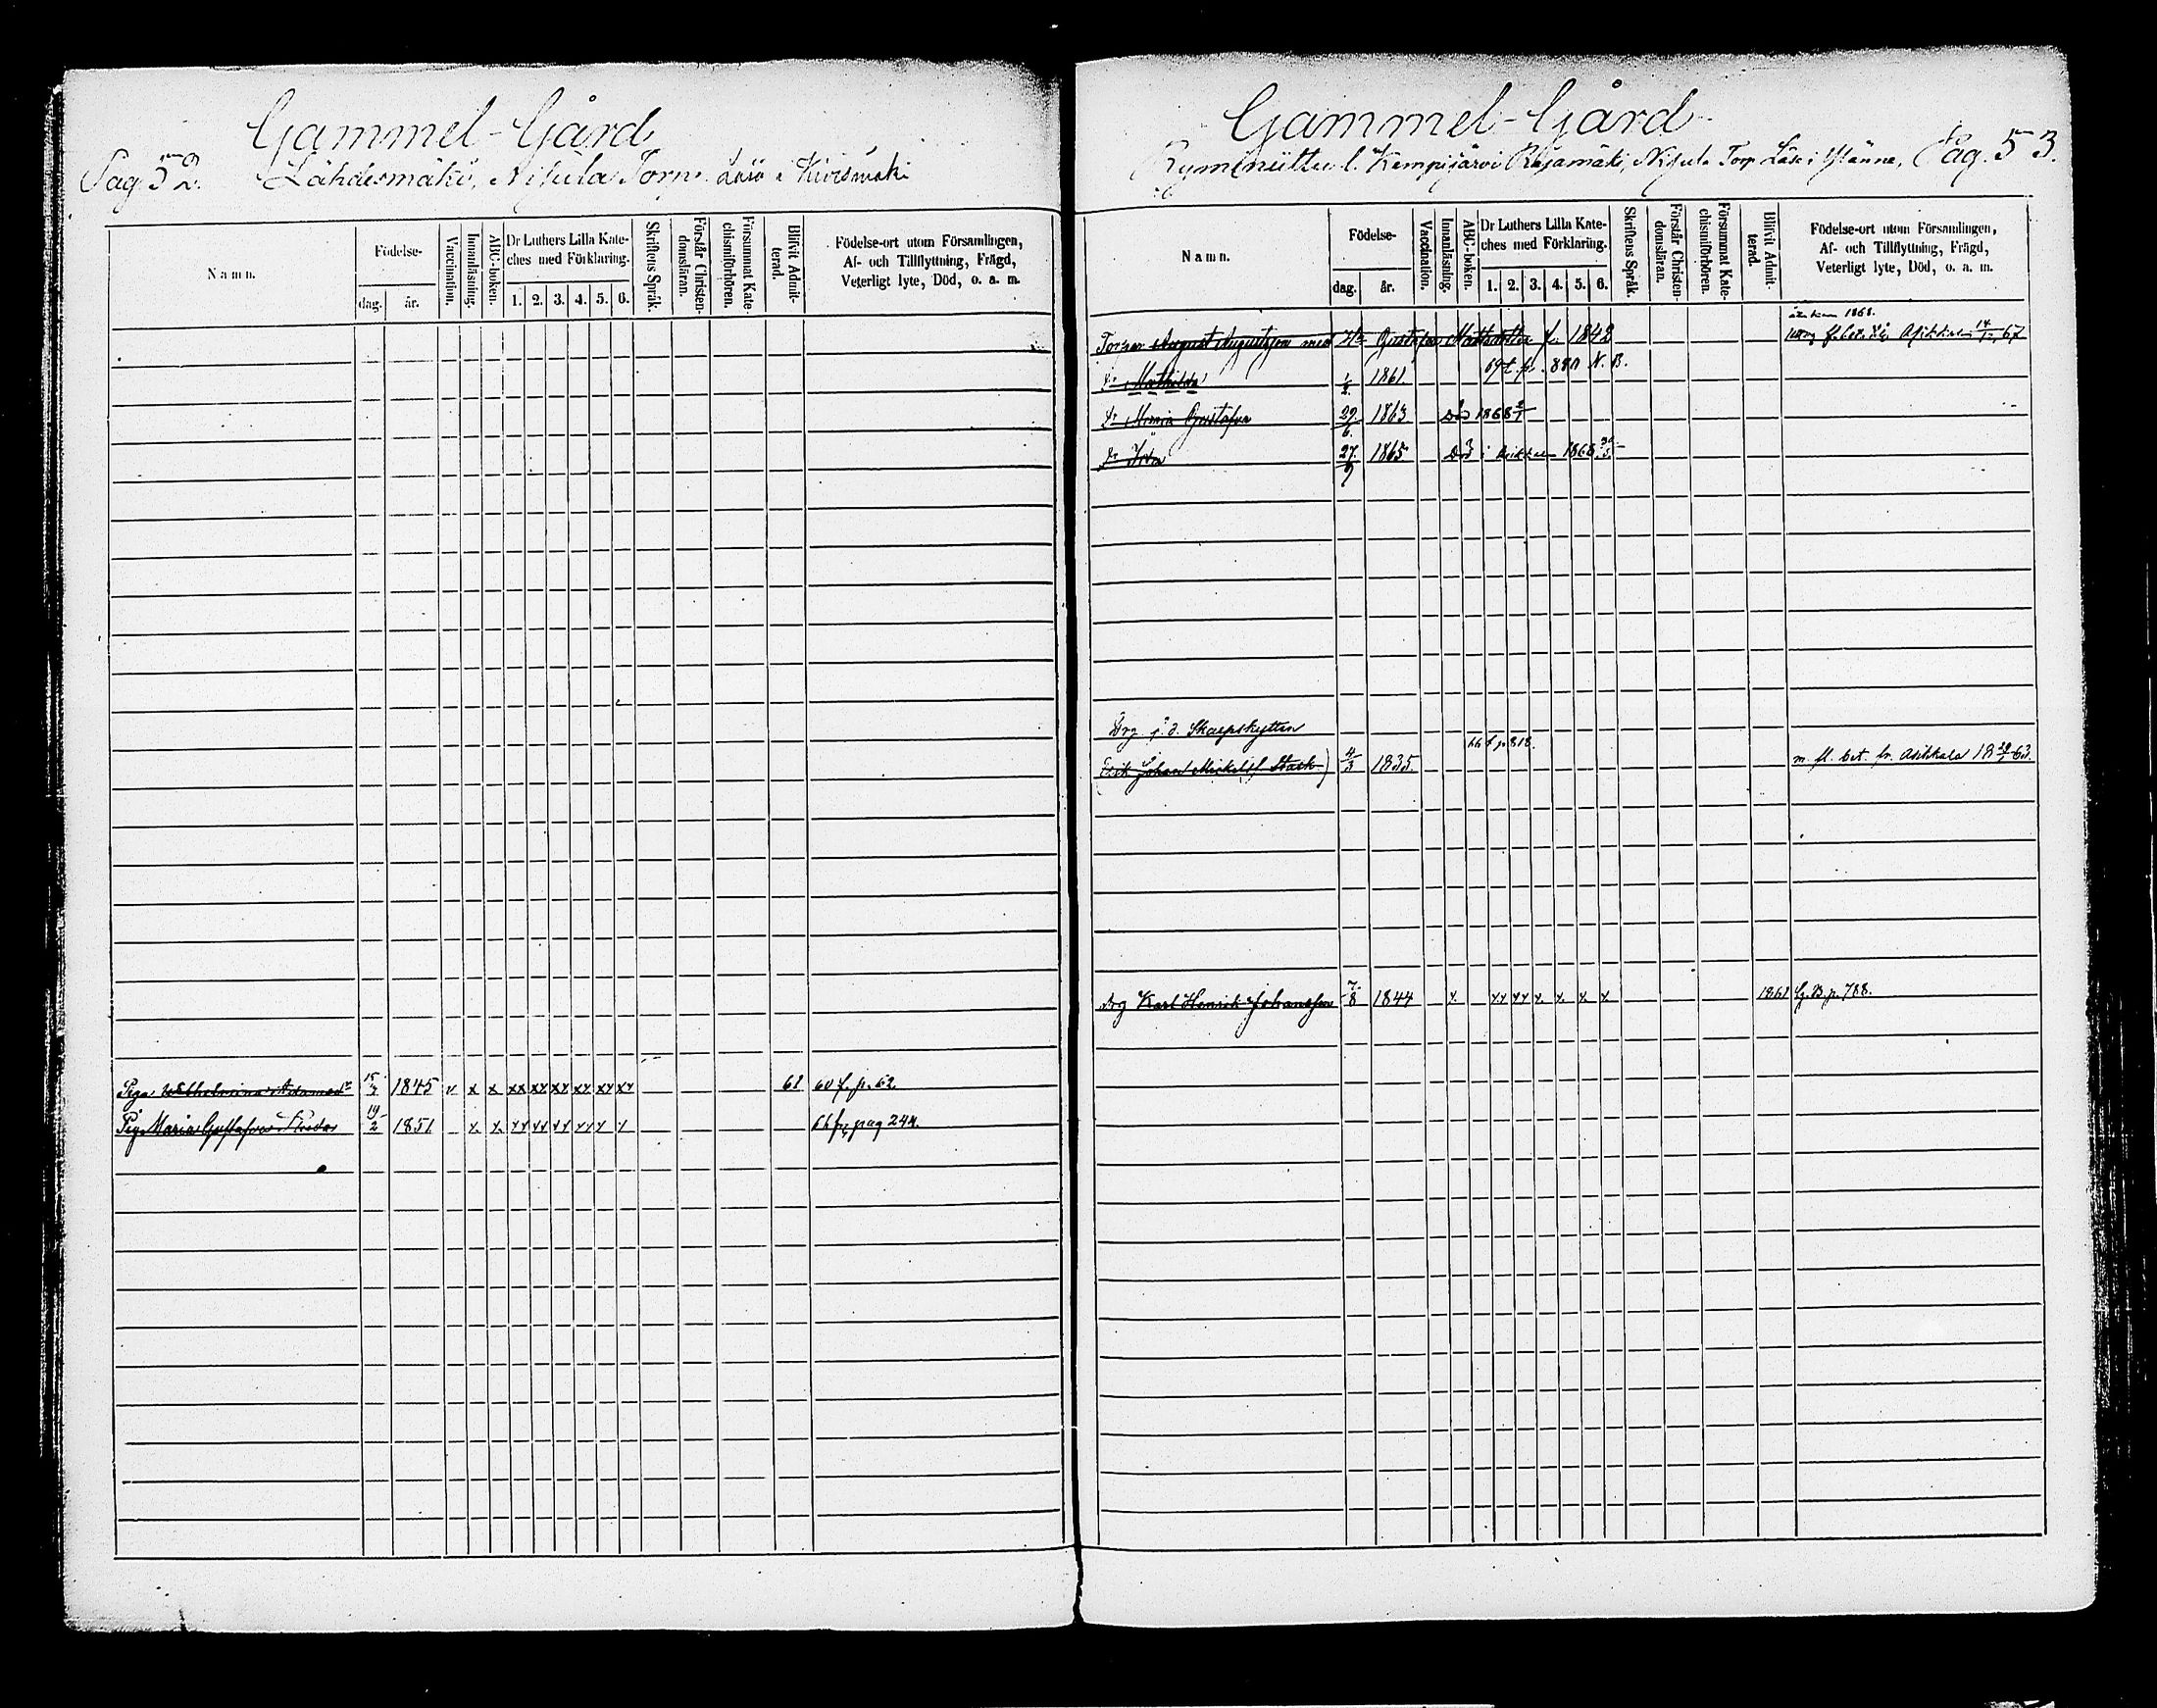 Gammel-Gård
Pag 52. Lähdesmäki, Nijula Torp. Läsa i Kivismäki
Namn. Födelse- dag. år. Vaccination. Innanläsning. ABC-boken. Dr Luthers Lilla Kateches med Förklaring. 1. 2. 3. 4. 5. 6. Skriftens Språk. Förstår Christendomsläran. Försummat Katechismiförhören. Blifvit Admitterad. Födelse-ort utom Församlingen, Af- och Tillflyttning, Frägd, Veterligt lyte, Död, o. a. m.
Piga Wilhelmina Adamsdr 15/7 1845 v x x xx xx xx xx xx xx 61 60 f. p. 62.
Pig. Maria Gustafva 19/2 1851 x x xx xx xx xx x x 66 fr. pag 244.
Gammel-Gård
l. Kempijärvi Rajamäki, Nijula Torp Läse i Ylänne, Pag. 53.
Namn. Födelse- dag. år. Vaccination. Innanläsning. ABC-boken. Dr Luthers Lilla Kateches med Förklaring. 1. 2. 3. 4. 5. 6. Skriftens Språk. Förstår Christendomsläran. Försummat Katechismiförhören. Blifvit Admitterad. Födelse-ort utom Församlingen, Af- och Tillflyttning, Frägd, Veterligt lyte, Död, o. a. m.
1868.
August Augustsson med H:u Gustafva Mattsdotter f. 1842 Asikkala 14/12 67
Dr Mathilda 1861. 69 t. p. 880 N. B.
Dr Maria Gustafva 29/6. 1863 Död 1868
Dr Ida 27/9 1865 Död i Asikkala 1868
Drg f. d. Skarpskytten
66 t p 818.
(Erik Johan Mickelss. Stark) 4/3 1835. m. fl. bet. fr. Asikkala 18 63.
Drg Karl Henrik Johansson 7/8 1844 x xx xx x x x x 1861 Lg. B. p. 788.